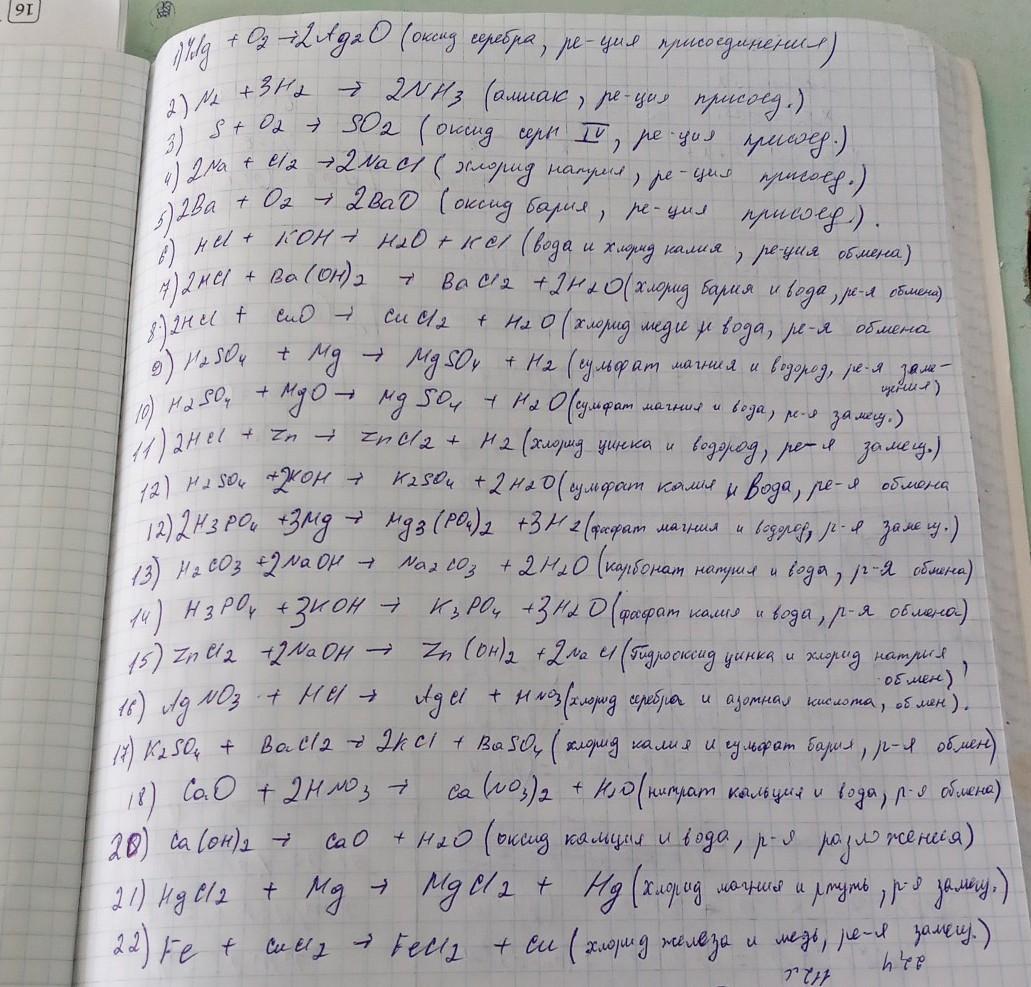 16
1) 4Ag + O2 → 2Ag2O (оксид серебра, ре-ция присоединения)
2) N2 + 3H2 → 2NH3 (амиак, ре-ция присоед.)
3) S + O2 → SO2 (оксид серы IV, ре-ция присоед.)
4) 2Na + Cl2 → 2NaCl (хлорид натрия, ре-ция присоед.)
5) 2Ba + O2 → 2BaO (оксид бария, ре-ция присоед.).
6) HCl + KOH → H2O + KCl (вода и хлорид калия, ре-ция обмена)
7) 2HCl + Ba(OH)2 → BaCl2 + 2H2O (хлорид бария и вода, ре-я обмена)
8) 2HCl + CuO → CuCl2 + H2O (хлорид меди и вода, ре-я обмена
9) H2SO4 + Mg → MgSO4 + H2 (сульфат магния и водород, ре-я заме-
щения)
10) H2SO4 + MgO → MgSO4 + H2O (сульфат магния и вода, ре-я замещ.)
11) 2HCl + Zn → ZnCl2 + H2 (хлорид цинка и водород, ре-я замещ.)
12) H2SO4 + 2KOH → K2SO4 + 2H2O (сульфат калия и вода, ре-я обмена
12) 2H3PO4 + 3Mg → Mg3(PO4)2 + 3H2 (фосфат магния и водород, р-я замещ.)
13) H2CO3 + 2NaOH → Na2CO3 + 2H2O (карбонат натрия и вода, р-я обмена)
14) H3PO4 + 3KOH → K3PO4 + 3H2O (фосфат калия и вода, р-я обмена)
15) ZnCl2 + 2NaOH → Zn(OH)2 + 2NaCl (Гидроксид цинка и хлорид натрия,
обмен)
16) AgNO3 + HCl → AgCl + HNO3 (хлорид серебра и азотная кислота, обмен).
17) K2SO4 + BaCl2 → 2KCl + BaSO4 (хлорид калия и сульфат бария, р-я обмен)
18) CaO + 2HNO3 → Ca(NO3)2 + H2O (нитрат кальция и вода, р-я обмена)
20) Ca(OH)2 → CaO + H2O (оксид кальция и вода, р-я разложения)
21) HgCl2 + Mg → MgCl2 + Hg (хлорид магния и ртуть, р-я замещ.)
22) Fe + CuCl2 → FeCl2 + Cu (хлорид железа и медь, ре-я замещ.)
22,4